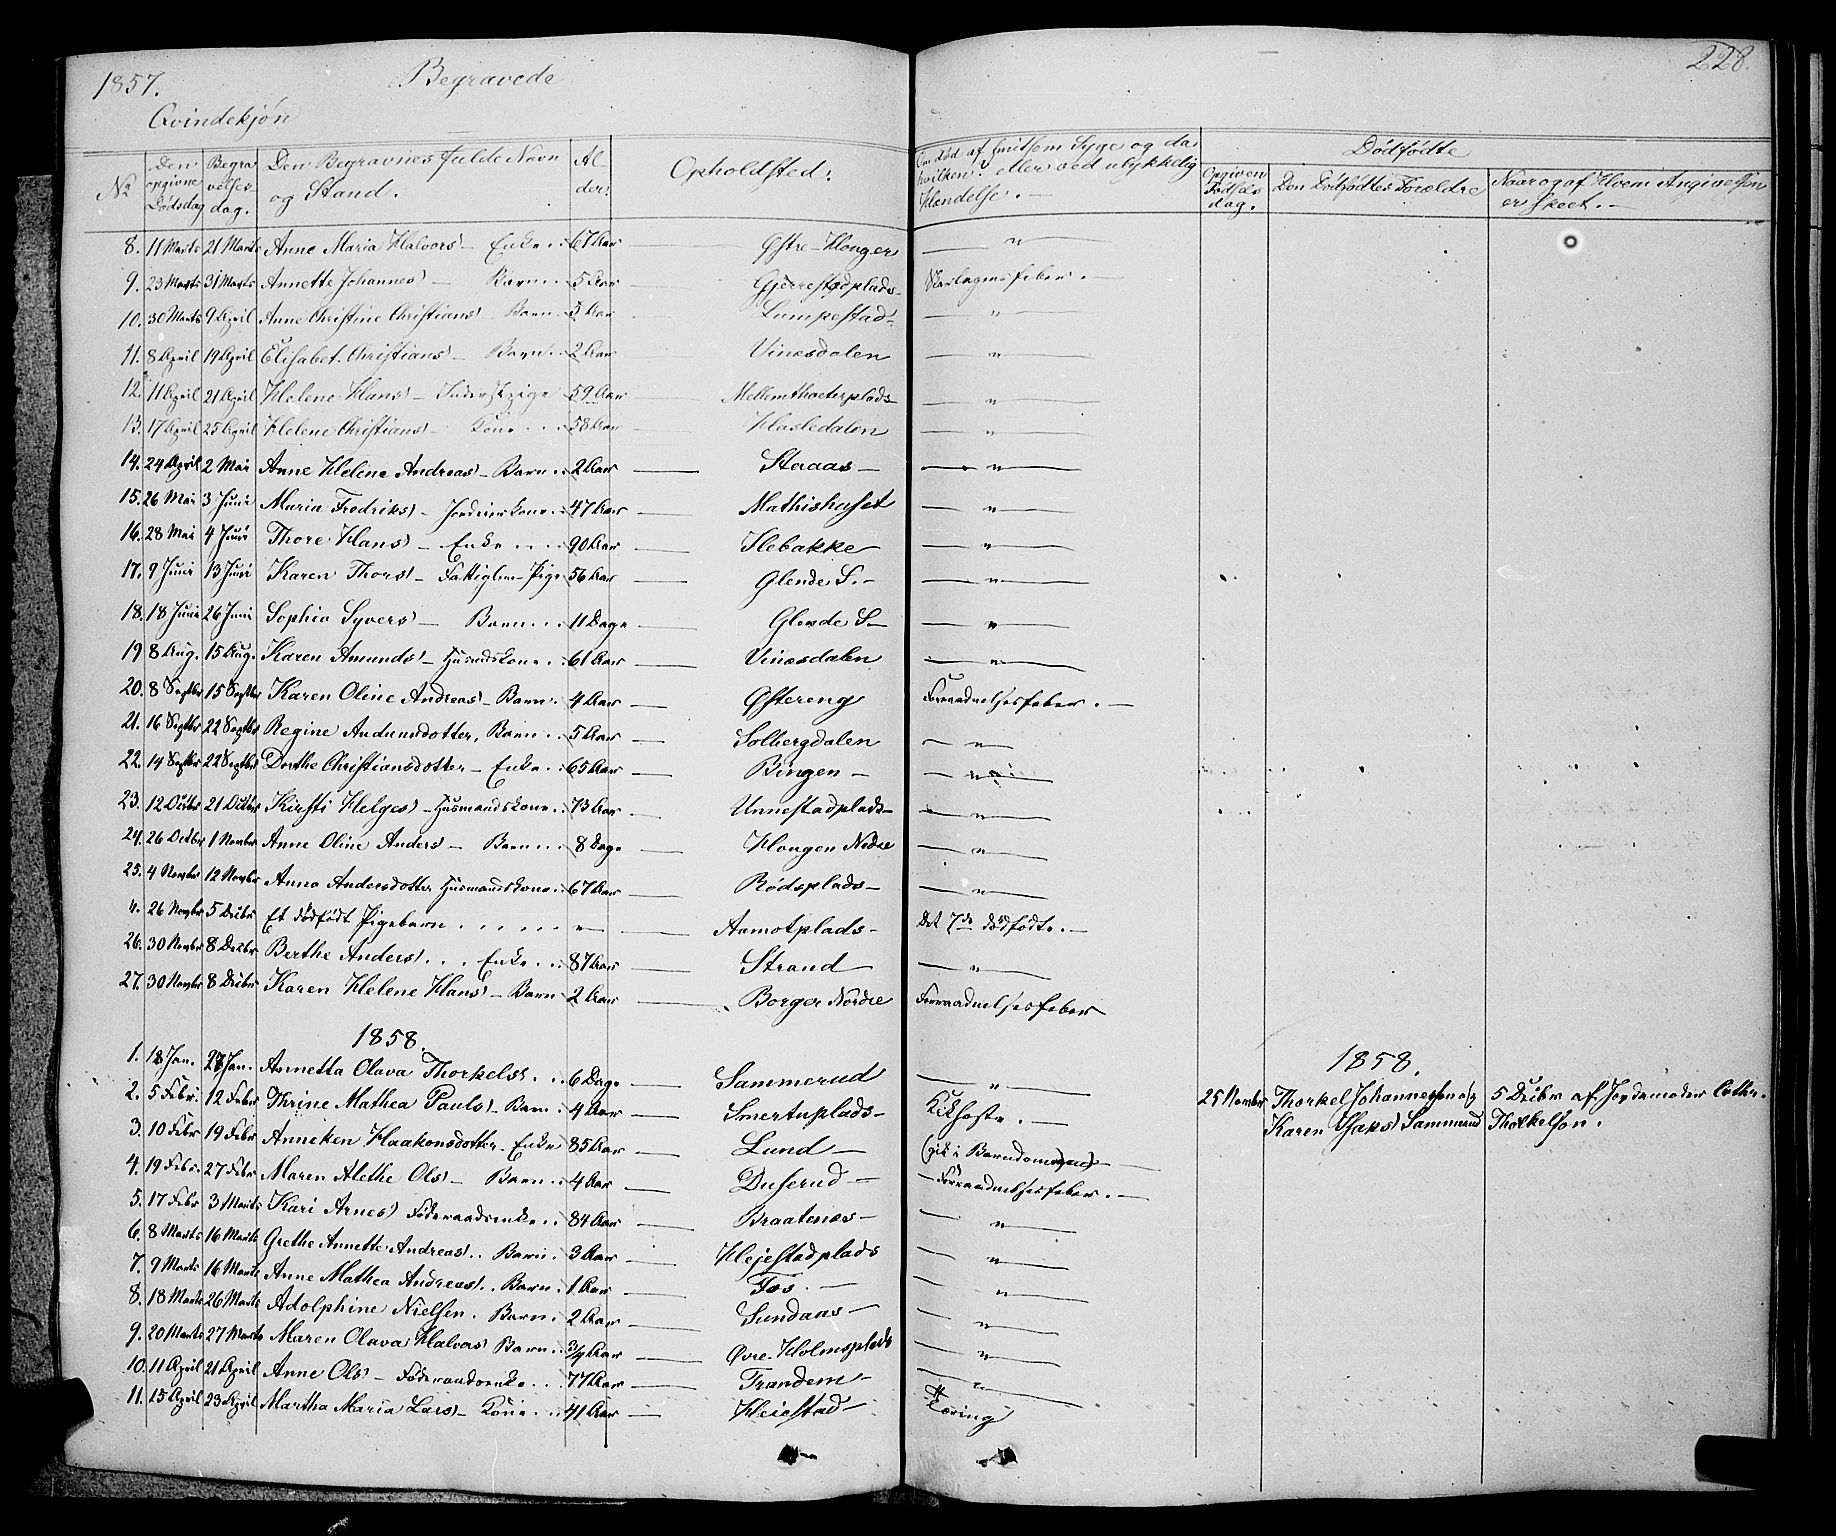 1857. Begravede 228.
Qvindekjøn
No Den opgivne Dødsdag Begravelses dag. Den Begravnes fulde Navn og Stand. Alder: Opholdsted: Om død af smitsom Syge og da hvilken? eller ved ulykkelig Hændelse. — Dødfødte
Opgiven Fødsels dag. Den Dødfødtes Forældre Naar og af Hvem Angivelsen er skeet. —
8. 11 Marts 21 Marts Anne Maria Halvors) — Enke 67 Aar Østre - Houger — " —
9. 23 Marts 31 Marts Annette Johannes) — Barn 5 Aar Gjerrestødplads - Skarlagensfeber. —
10. 30 Marts 9 April Anne Christine Christians) Barn 5 Aar Lumpestad — " —
11. 8 April 19 April Elisabet Christians) — Barn 2 Aar Vinæsdalen — " —
12. 11 April 21 April Helene Hans) — Inderstpige 59 Aar Mellemthveterplads — " —
13. 17 April 25 April Helene Christians) — Kone 58 Aar Hasledalen — " —
14. 24 April 2 Mai Anne Helene Andreas) — Barn 2 Aar — Staaas — — " —
15. 26 Mai 3 Juni Maria Fredriks) — Jordeierkone 47 Aar — Mathishuset — " —
16. 28 Mai 4 Juni Thore Hans) — Enke 90 Aar — Slebakke — " —
17. 9 Juni 13 Juni Karen Thors) — Fattiglem - Pige 56 Aar — Glende S. — — " —
18. 18 Juni 26 Juni Sophia Syvers — Barn 11 Dage — Glende S — — " —
19 8 Aug. 15 Aug. Karen Amunds) — Husmdskone 61 Aar — Vinæsdalen — " —
20. 8 Septbr 15 Septbr Karen Oline Andreas) — Barn 4 Aar — Østereng Forraadnelsesfeber. —
21. 16 Septbr 22 Septbr Regine Andunsdotter, Barn 5 Aar — Solbergdalen — " —
22. 14 Septbr 22 Septbr Dorthe Christiansdotter — Enke 65 Aar — Bingen — — " —
23. 12 Octbr 21 Octbr Kirsti Helges) — Husmandskone 73 Aar — Unnestadplads — — " —
24. 26 Octbr 1 Novbr Anne Oline Anders) — Barn 8 Dage — Hougen Nedre — " —
25. 4 Novbr 12 Novbr Anna Andersdotter Husmandskone 67 Aar — Rødsplads — — " —
4. 26 Novbr 5 Decbr Et dødfødt Pigebarn . . . . . . " — Aamotplads — Det 7de dødfødte. —
26. 30 Novbr 8 Decbr Berthe Anders) . . . Enke 87 Aar — Strand — — " —
27. 30 Novbr 8 Decbr Karen Helene Hans) — Barn 2 Aar — Borger Nordre Forraadnelsesfeber
1858. 1858.
1. 18 Jan. 27 Jan. Annetta Olava Thorkels) 6 Dage — Sammerud — " —
2. 5 Febr. 12 Febr Thrine Mathea Pauls) — Barn 4 Aar — Smertuplads — Kikhoste. — 25 Novmbr Thorkel Johannessen og 5 Decbr af Jordemoder Cathr.
Karen Isaks) Sammerud Thorkelson.
3. 10 Febr 19 Febr Anneken Haakonsdotter - Enke 85 Aar — Lund — (gik i Barndom) —
4. 19 Febr. 27 Febr Maren Alethe Ols) — Barn 4 Aar — Duserud — — Forraadnelsesfeber. —
5. 17 Febr 3 Marts Kari Arnes) Føderaadsenke 84 Aar — Braatenæs — — " —
6. 8 Marts 16 Marts Grethe Annette Andreas) . . Barn 3 Aar — Hejestadplads — " —
7. 9 Marts 16 Marts Anne Mathea Andreas) . . Barn 1 Aar — Fos. — — " —
8. 18 Marts 26 Marts Adolphine Nielsen. Barn 2 Aar — Sundaas — — " —
9. 20 Marts 27 Marts Maren Olava Halvors) Barn 3/4 Aar — Øvre Holmsplads — " —
10. 11 April 21 April Anne Ols) — Føderaadsenke 77 Aar — Trandem — — " —
11. 15 April 23 April Martha Maria Lars) — Kone 41 Aar — Heiestad — Tæring